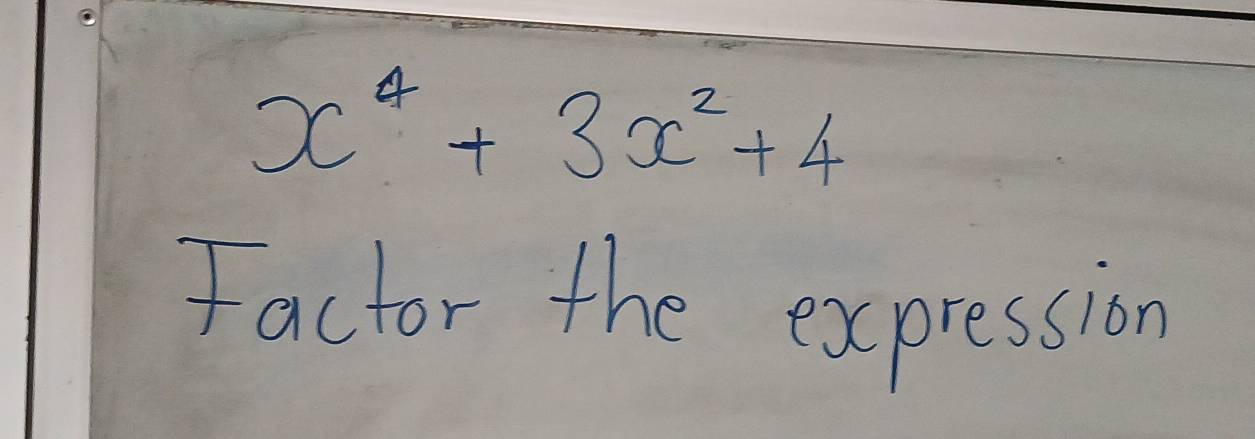 x⁴ + 3x² + 4
Factor the expression